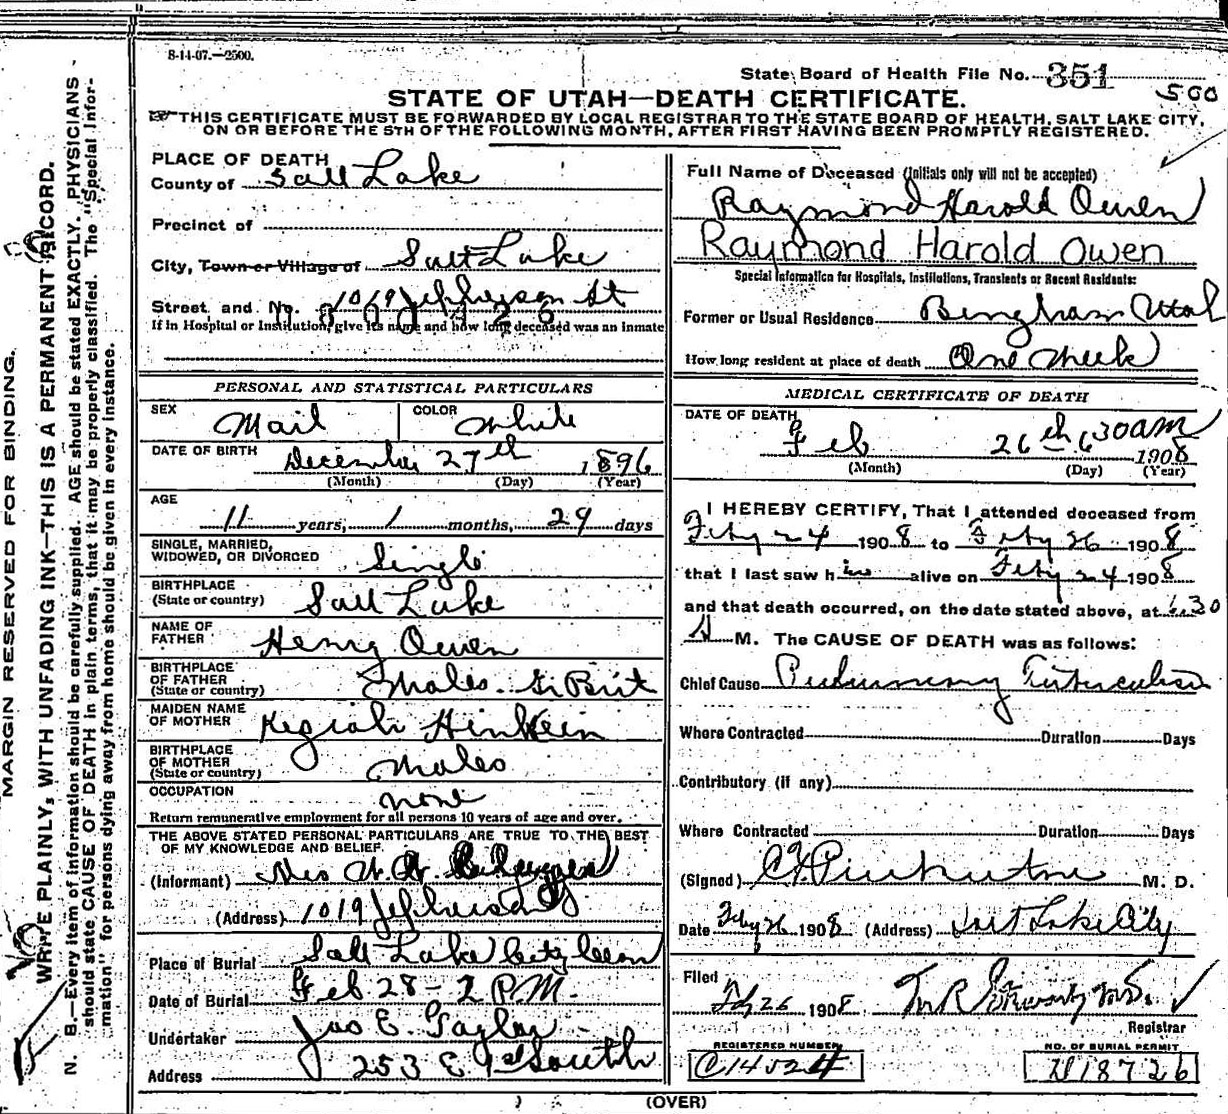 8-14-07.—2500.
State Board of Health File No. 351
500
STATE OF UTAH—DEATH CERTIFICATE.
THIS CERTIFICATE MUST BE FORWARDED BY LOCAL REGISTRAR TO THE STATE BOARD OF HEALTH, SALT LAKE CITY,
ON OR BEFORE THE 5TH OF THE FOLLOWING MONTH, AFTER FIRST HAVING BEEN PROMPTLY REGISTERED.
PLACE OF DEATH
County of Salt Lake
Precinct of
City, Town or Village of Salt Lake
Street and No. 1019 Jefferson St
If in Hospital or Institution, give its name and how long deceased was an inmate
PERSONAL AND STATISTICAL PARTICULARS
SEX Mail COLOR White
DATE OF BIRTH December 27th 1896
(Month) (Day) (Year)
AGE
11 years, 1 months, 29 days
SINGLE, MARRIED,
WIDOWED, OR DIVORCED Single
BIRTHPLACE
(State or country) Salt Lake
NAME OF
FATHER Henry Owen
BIRTHPLACE
OF FATHER
(State or country) Wales. Gr Brit
MAIDEN NAME
OF MOTHER Keziah
BIRTHPLACE
OF MOTHER
(State or country) Wales
OCCUPATION none
Return remunerative employment for all persons 10 years of age and over.
THE ABOVE STATED PERSONAL PARTICULARS ARE TRUE TO THE BEST
OF MY KNOWLEDGE AND BELIEF.
(Informant) Mrs
(Address) 1019 Jefferson
Place of Burial Salt Lake City Cem
Date of Burial Feb 28 - 2 P.M.
Undertaker Jos E. Taylor
Address 253 E 1st South
Full Name of Deceased (Initials only will not be accepted)
Raymond Harold Owen
Raymond Harold Owen
Special Information for Hospitals, Institutions, Transients or Recent Residents:
Former or Usual Residence Bingham Utah
How long resident at place of death One Week
MEDICAL CERTIFICATE OF DEATH
DATE OF DEATH
Feb 26th 6 30 am 1908
(Month) (Day) (Year)
I HEREBY CERTIFY, That I attended deceased from
Feby 24 1908 to Feby 26 1908
that I last saw him alive on Feby 24 1908
and that death occurred, on the date stated above, at 6.30
A M. The CAUSE OF DEATH was as follows:
Chief Cause Pulmonary Tuberculosis
Where Contracted Duration Days
Contributory (if any)
Where Contracted Duration Days
(Signed) M. D.
Date Feby 26 1908 (Address) Salt Lake City
Filed
Feb 26 1908
Registrar
REGISTERED NUMBER
C14524
NO. OF BURIAL PERMIT
D18726
(OVER)
MARGIN RESERVED FOR BINDING.
WRITE PLAINLY, WITH UNFADING INK—THIS IS A PERMANENT RECORD.
N. B.—Every item of information should be carefully supplied. AGE should be stated EXACTLY. PHYSICIANS
should state CAUSE OF DEATH in plain terms, that it may be properly classified. The "Special Infor-
mation" for persons dying away from home should be given in every instance.